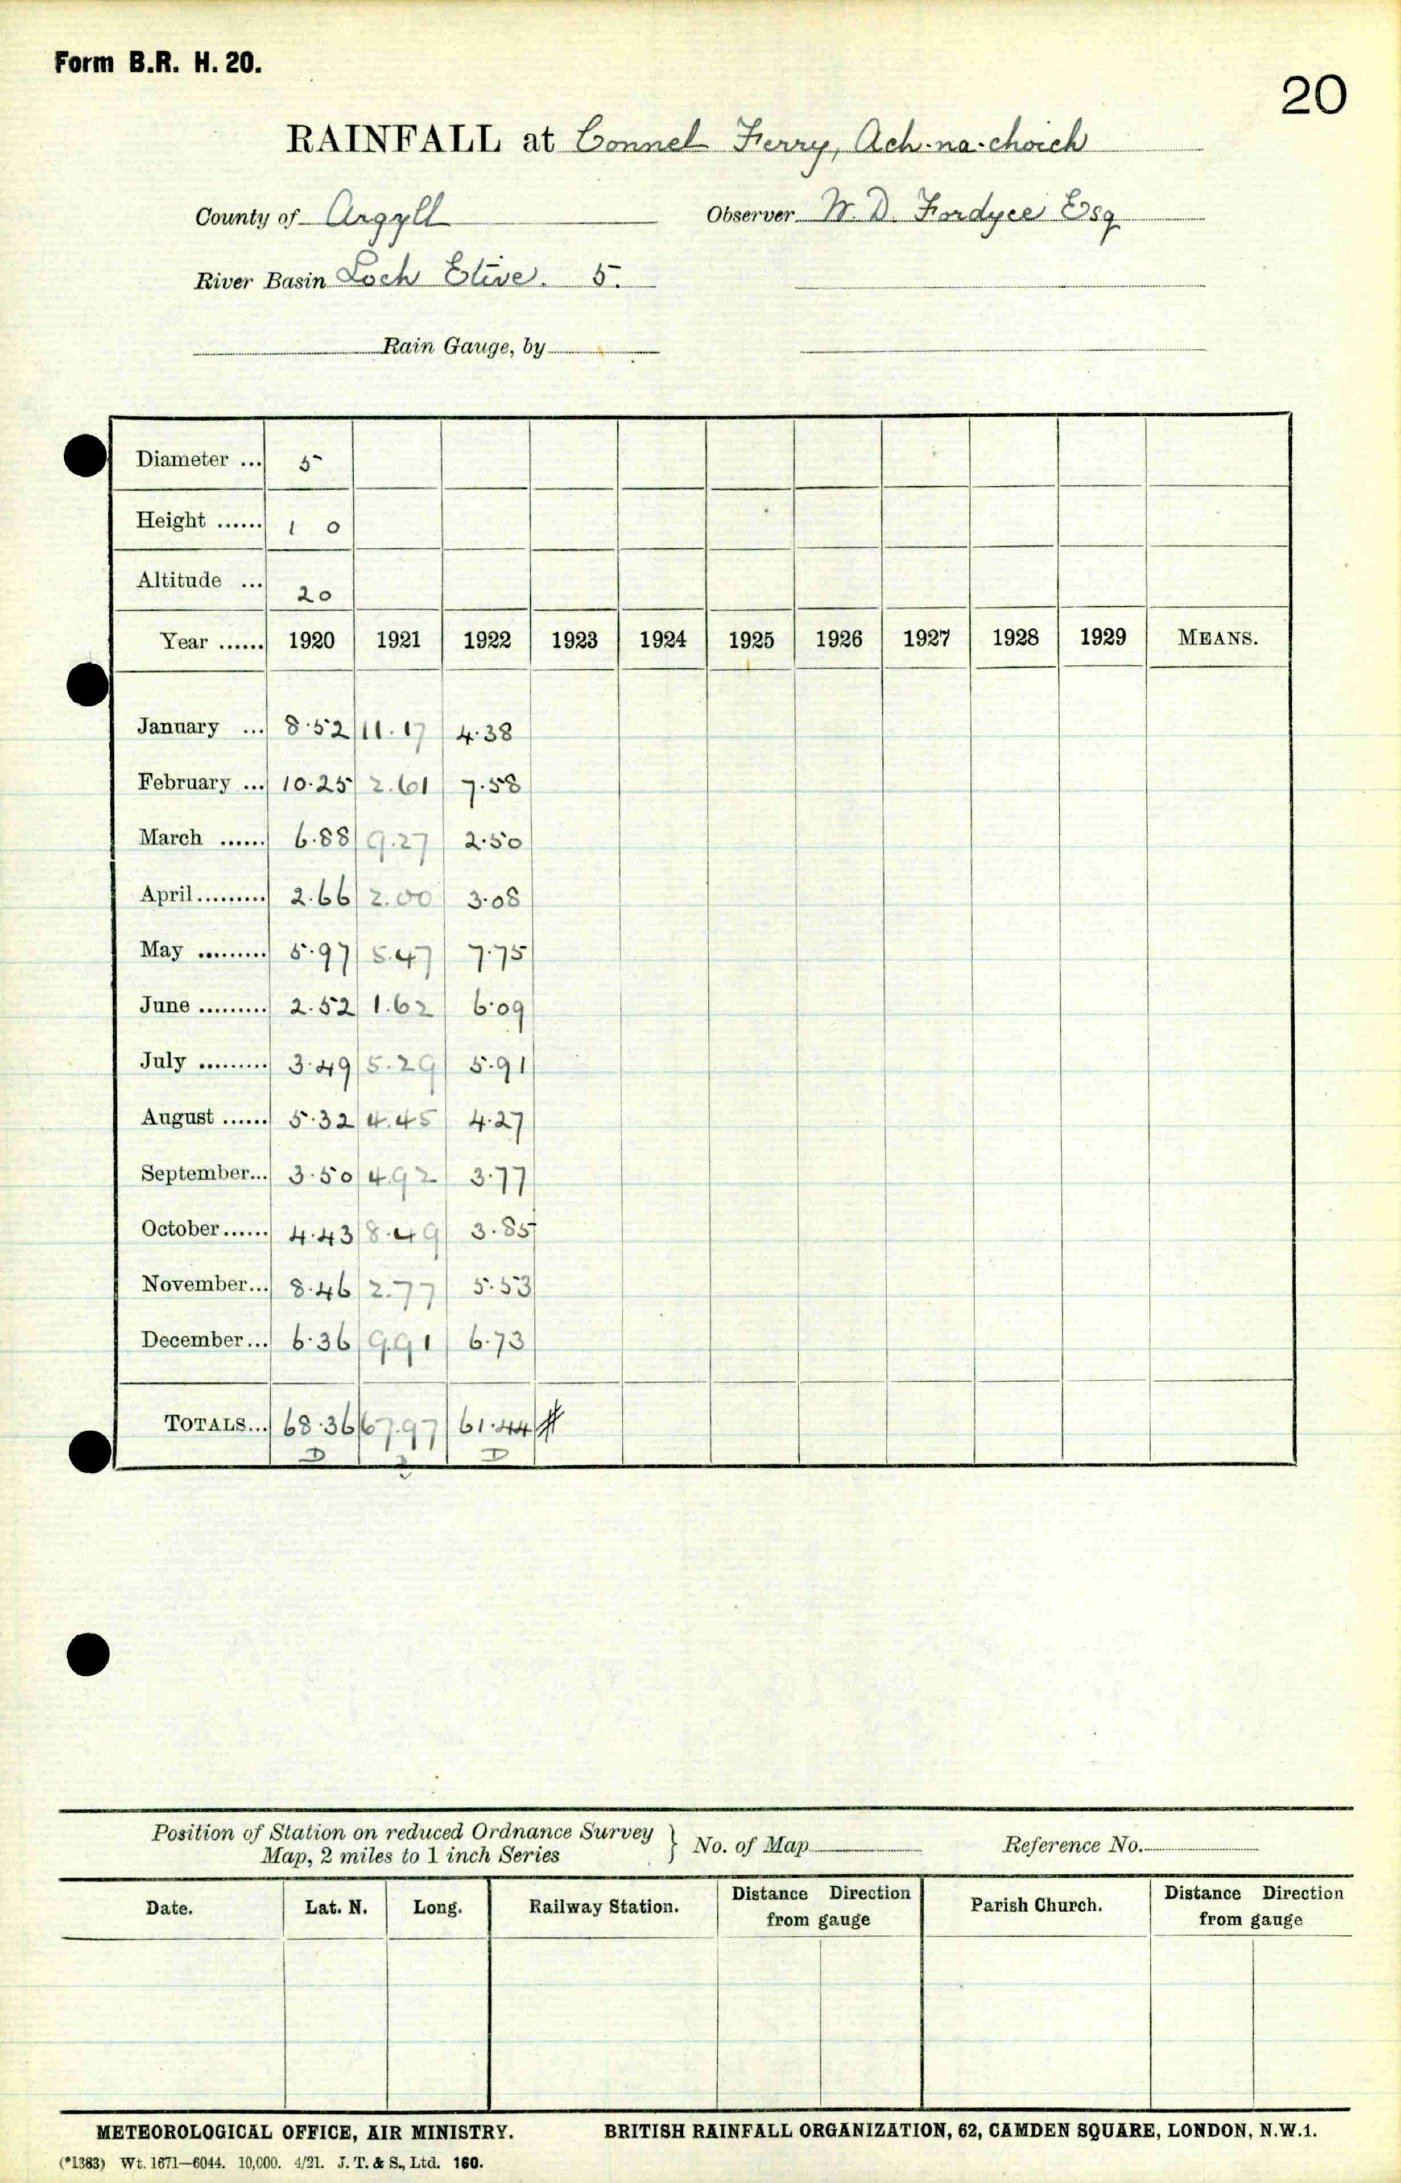 Form B.R. H. 20.
20
RAINFALL at Connel Ferry, Ach-na-choich
County of Argyll Observer W. D. Fordyce Esq
River Basin Loch Etive. 5.
Rain Gauge, by
Diameter ... 5
Height ...... 1 0
Altitude ... 20
Year ...... 1920 1921 1922 1923 1924 1925 1926 1927 1928 1929 MEANS.
January ... 8.52 11.17 4.38
February ... 10.25 2.61 7.58
March ...... 6.88 9.27 2.50
April......... 2.66 2.00 3.08
May ......... 5.97 5.47 7.75
June ......... 2.52 1.62 6.09
July ......... 3.49 5.29 5.91
August ...... 5.32 4.45 4.27
September... 3.50 4.92 3.77
October...... 4.43 8.49 3.85
November... 8.46 2.77 5.53
December... 6.36 9.91 6.73
TOTALS... 68.36 67.97 61.44 #
D D
Position of Station on reduced Ordnance Survey
Map, 2 miles to 1 inch Series } No. of Map Reference No.
Date. Lat. N. Long. Railway Station. Distance Direction from gauge Parish Church. Distance Direction from gauge
METEOROLOGICAL OFFICE, AIR MINISTRY. BRITISH RAINFALL ORGANIZATION, 62, CAMDEN SQUARE, LONDON, N.W.1.
(*1383) Wt. 1671—6044. 10,000. 4/21. J. T. & S., Ltd. 160.